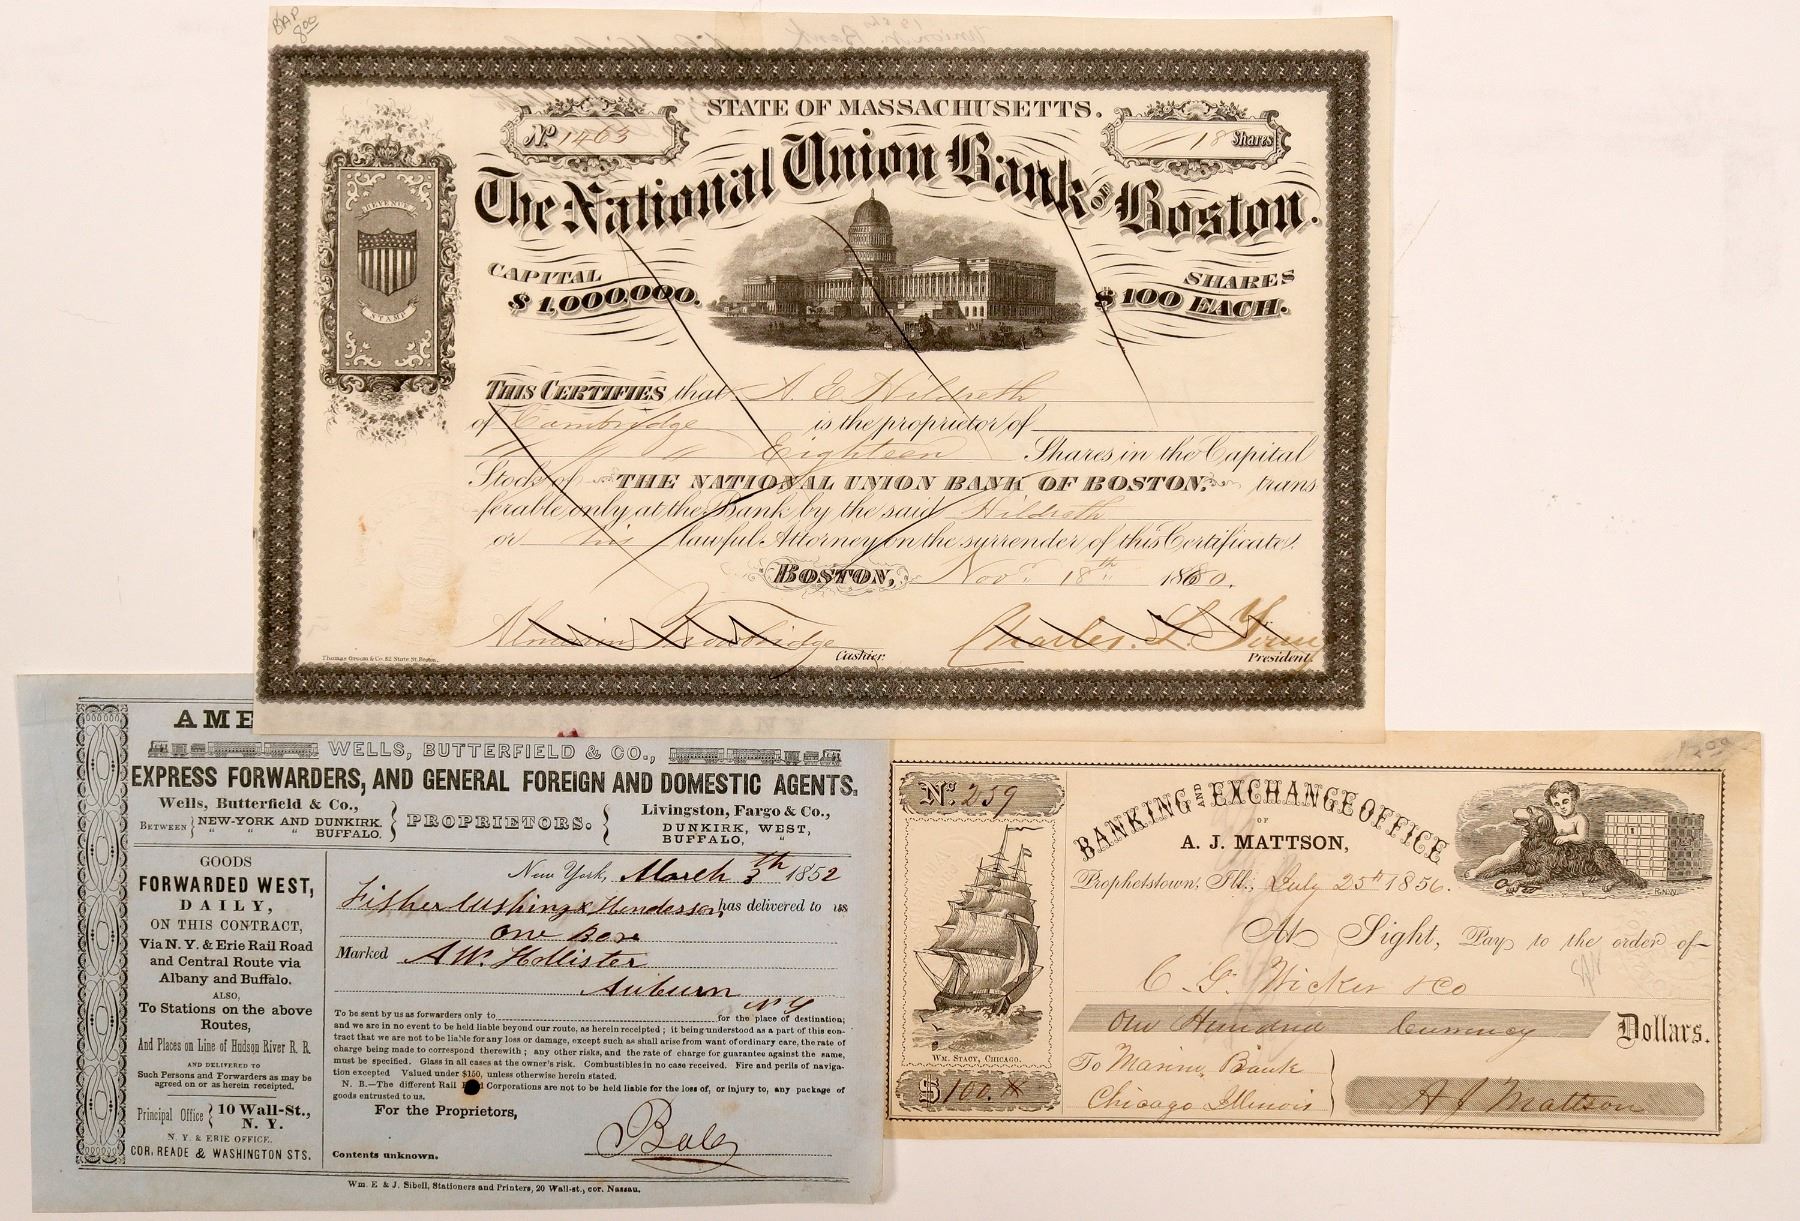 BAP
8.00
STATE OF MASSACHUSETTS.
No 1463
18 Shares
The National Union Bank OF Boston.
REVENUE
STAMP
CAPITAL
$1,000,000.
SHARES
$100 EACH.
THIS CERTIFIES that A. E. Hildreth
of Cambridge is the proprietor of
Eighteen Shares in the Capital
Stock of THE NATIONAL UNION BANK OF BOSTON, trans
ferable only at the Bank by the said Hildreth
or his lawful Attorney on the surrender of this Certificate.
BOSTON, Nov. 18th 1880.
Almarin Trowbridge Cashier.
Charles L. President.
Thomas Groom & Co. 82 State St. Boston.
AME
WELLS, BUTTERFIELD & CO.,
EXPRESS FORWARDERS, AND GENERAL FOREIGN AND DOMESTIC AGENTS,
Wells, Butterfield & Co.,
BETWEEN NEW-YORK AND DUNKIRK,
" " " BUFFALO,
PROPRIETORS.
Livingston, Fargo & Co.,
DUNKIRK, WEST,
BUFFALO, "
GOODS
FORWARDED WEST,
DAILY,
ON THIS CONTRACT,
Via N. Y. & Erie Rail Road
and Central Route via
Albany and Buffalo.
ALSO,
To Stations on the above
Routes,
And Places on Line of Hudson River R. R.
AND DELIVERED TO
Such Persons and Forwarders as may be
agreed on or as herein receipted.
Principal Office 10 Wall-St.,
N. Y.
N. Y. & ERIE OFFICE,
COR, READE & WASHINGTON STS.
New York, March 5th 1852
Fisher Cushing & Henderson has delivered to us
One Box
Marked A W. Hollister
Auburn
N Y
To be sent by us as forwarders only to for the place of destination;
and we are in no event to be held liable beyond our route, as herein receipted; it being understood as a part of this con-
tract that we are not to be liable for any loss or damage, except such as shall arise from want of ordinary care, the rate of
charge being made to correspond therewith; any other risks, and the rate of charge for guarantee against the same,
must be specified. Glass in all cases at the owner's risk. Combustibles in no case received. Fire and perils of naviga-
tion excepted Valued under $150, unless otherwise herein stated.
N. B.—The different Rail Corporations are not to be held liable for the loss of, or injury to, any package of
goods entrusted to us.
For the Proprietors,
Contents unknown.
Wm. E & J. Sibell, Stationers and Printers, 20 Wall-st., cor. Nassau.
No. 259
BANKING AND EXCHANGE OFFICE
OF
A. J. MATTSON,
Prophetstown, Ill., July 25th 1856.
At Sight, Pay to the order of
C. G. Wicker & Co
One Hundred Currency Dollars.
To Marine Bank
Chicago Illinois
A J Mattson
WM. STACY, CHICAGO.
$100.